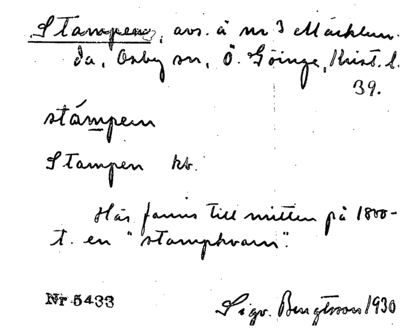 Stampen, avs. å nr 3 Marklun-
da, Osby sn, Ö. Göinge, Krist. l.
39.
stámpen
Stampen kb.
Här fanns till mitten på 1800-
t. en "stampkvarn".
Nr 5433 Sigv. Bengtsson 1930